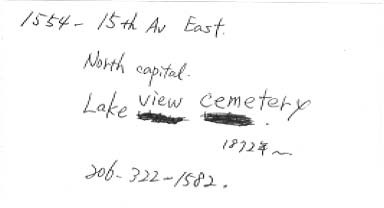 1554 - 15th Av East.
North capital.
Lake view cemetery
1872年～
206-322-1582.